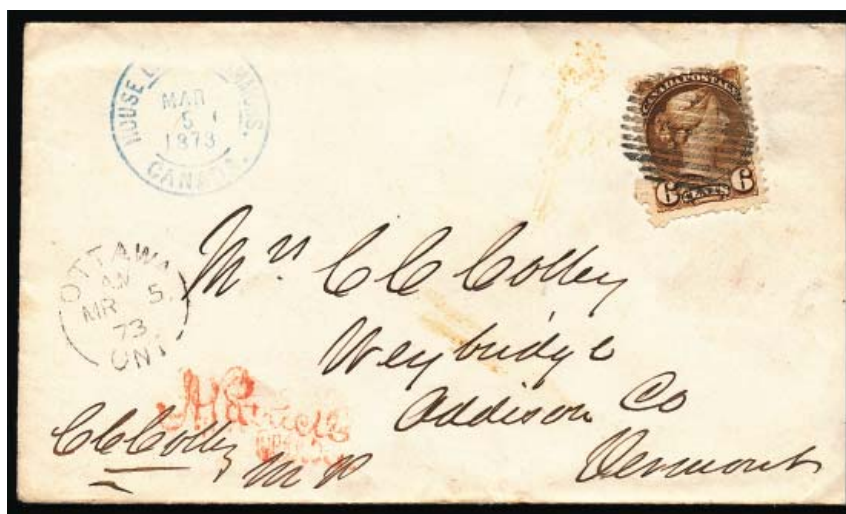 HOUSE
MMONS.
MAR
5
1873
CANADA.
CANADA POSTAGE
6 CENTS 6
OTTAWA
AM
MR 5
73
ONT
Mrs C C Colby
Weybridge
Addison Co
Vermont
C C Colby
M P